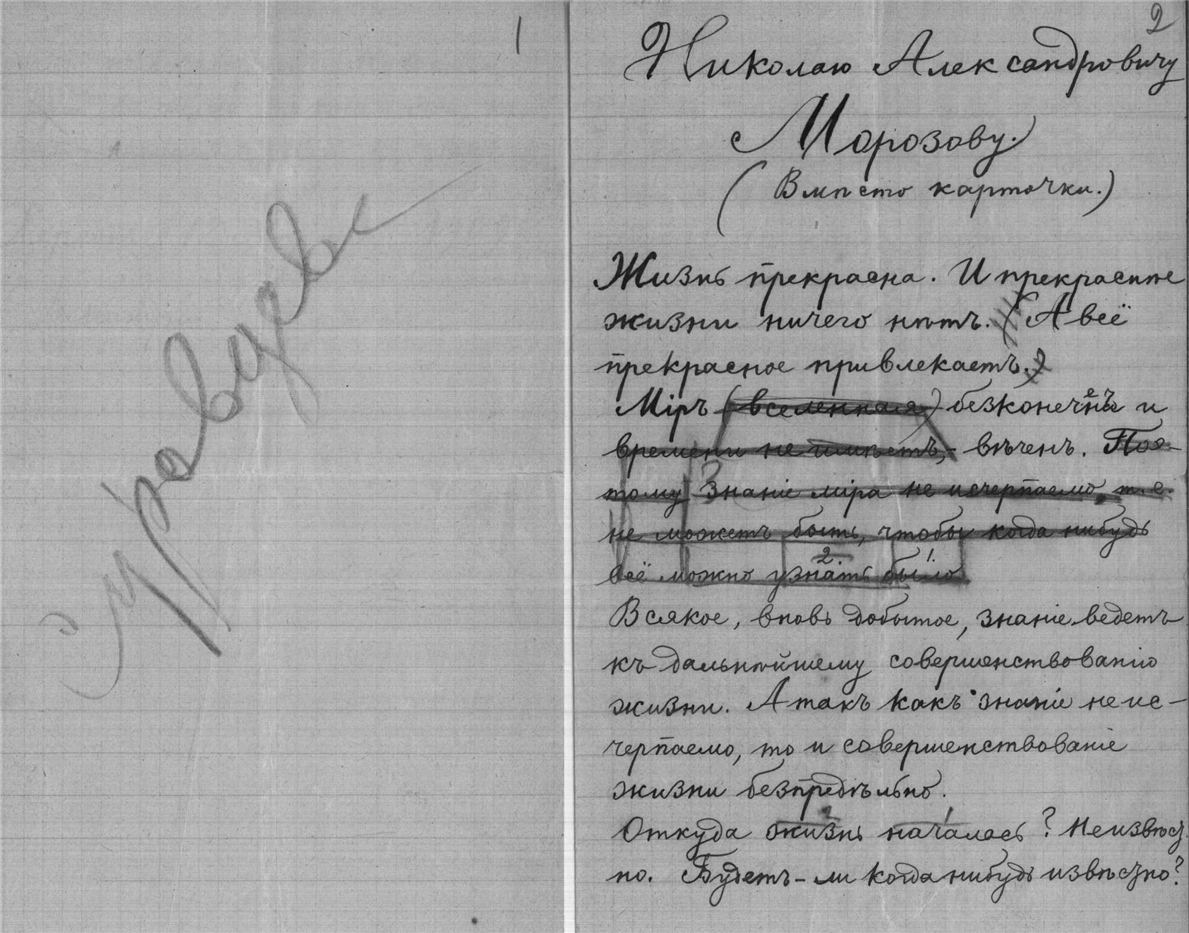 1
Суровцевъ
2
Николаю Александровичу
Морозову.
(Вмѣсто карточки.)
Жизнь прекрасна. И прекраснѣе
жизни ничего нѣтъ. (А всё
прекрасное привлекаетъ.)
Міръ (вселенная) безконеченъ и
времени не имѣетъ, – вѣченъ. Поэ-
тому знаніе міра не исчерпаемо, т. е.
не можетъ быть, чтобы когда нибудь
всё можно узнать было
2 1
Всякое, вновь добытое, знаніе ведетъ
къ дальнѣйшему совершенствованію
жизни. А такъ какъ знаніе неис-
черпаемо, то и совершенствованіе
жизни безпредѣльно.
2 1
Откуда жизнь началась? Неизвѣст-
но. Будетъ-ли когда нибудь извѣстно?